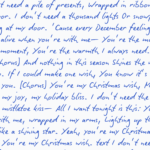 't need a pile of presents, Wrapped in ribbon
oor. I don't need a thousand lights Or snow
g at my door. 'Cause every December feeling
alive when you're with me— You're the
moment, You're the warmth I always need.
horus) And nothing in this season shines the
. If I could make one wish, You know it's
you. (Chorus) You're my Christmas wish, M
my joy, my holiday bliss. I don't need the
mistletoe kiss— All I want tonight is this: Yo
ith me, wrapped in my arms, Lighting up t
ike a shining star. Yeah, you're my Christma
You're my Christmas wish. text I don't nee